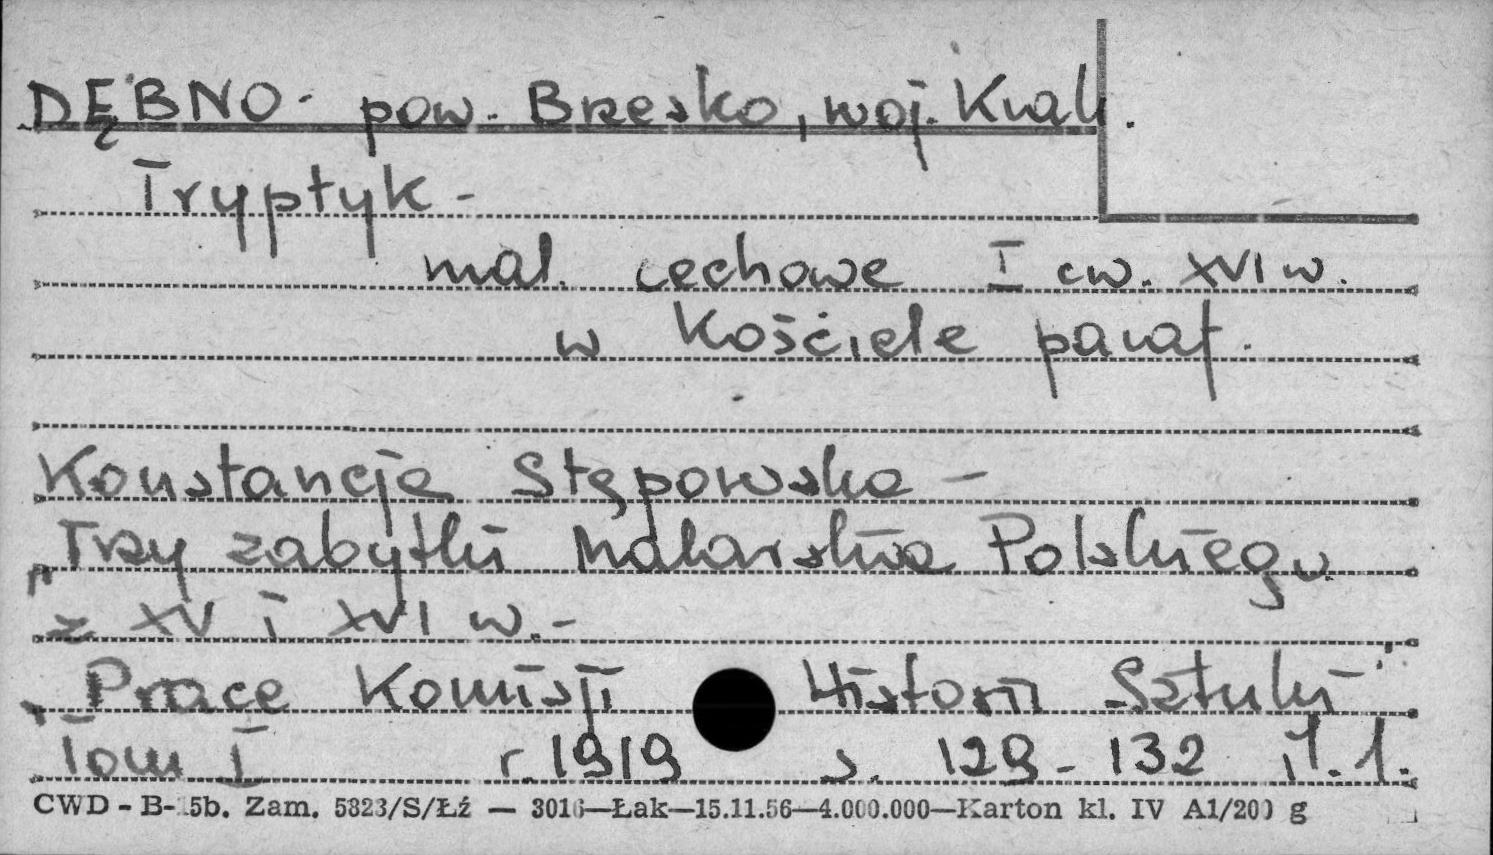 DĘBNO - pow. Brzesko, woj. Krak.
Tryptyk -
mal. cechowe I ćw. XVI w.
w Kościele paraf.
Konstancja Stępowska -
"Trzy zabytki Malarstwa Polskiego
z XV i XVI w. -
"Prace Komisji Historii Sztuki"
Tom I r. 1919 s. 129 - 132 il. 1.
CWD - B-15b. Zam. 5823/S/Łź — 3016—Łak—15.11.56—4.000.000—Karton kl. IV A1/200 g